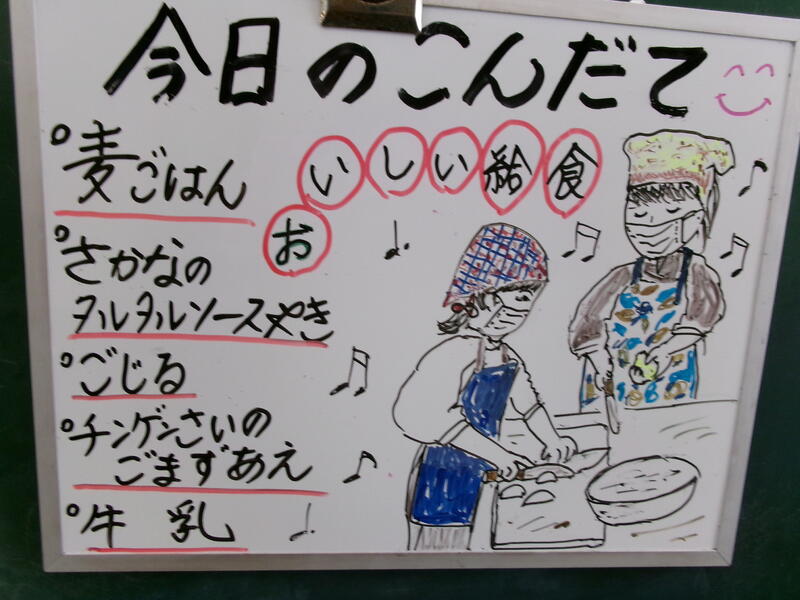 今日のこんだて
おいしい給食
麦ごはん
さかなの
タルタルソースやき
ごじる
チンゲンさいの
ごまずあえ
牛乳